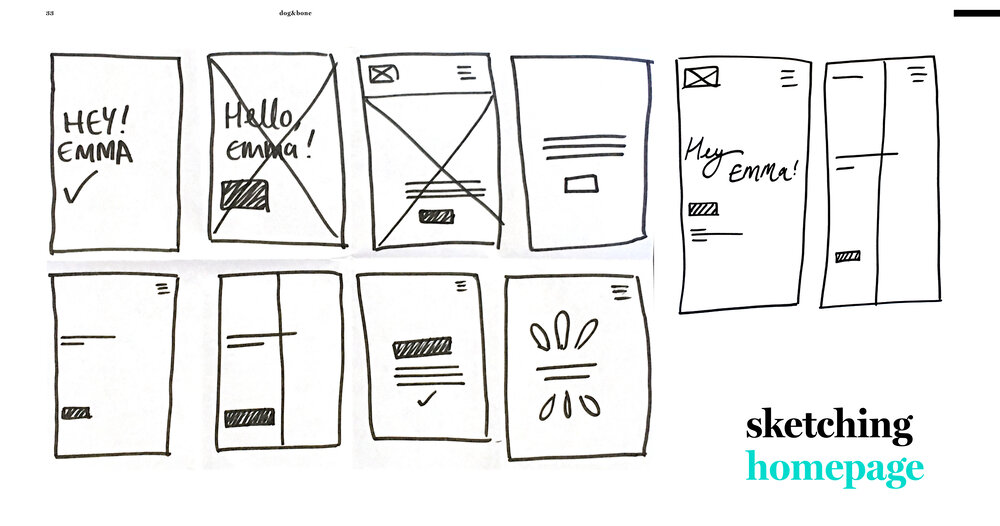 33
dog&bone
HEY!
EMMA
Hello,
Emma!
Hey
EMMa!
sketching
homepage